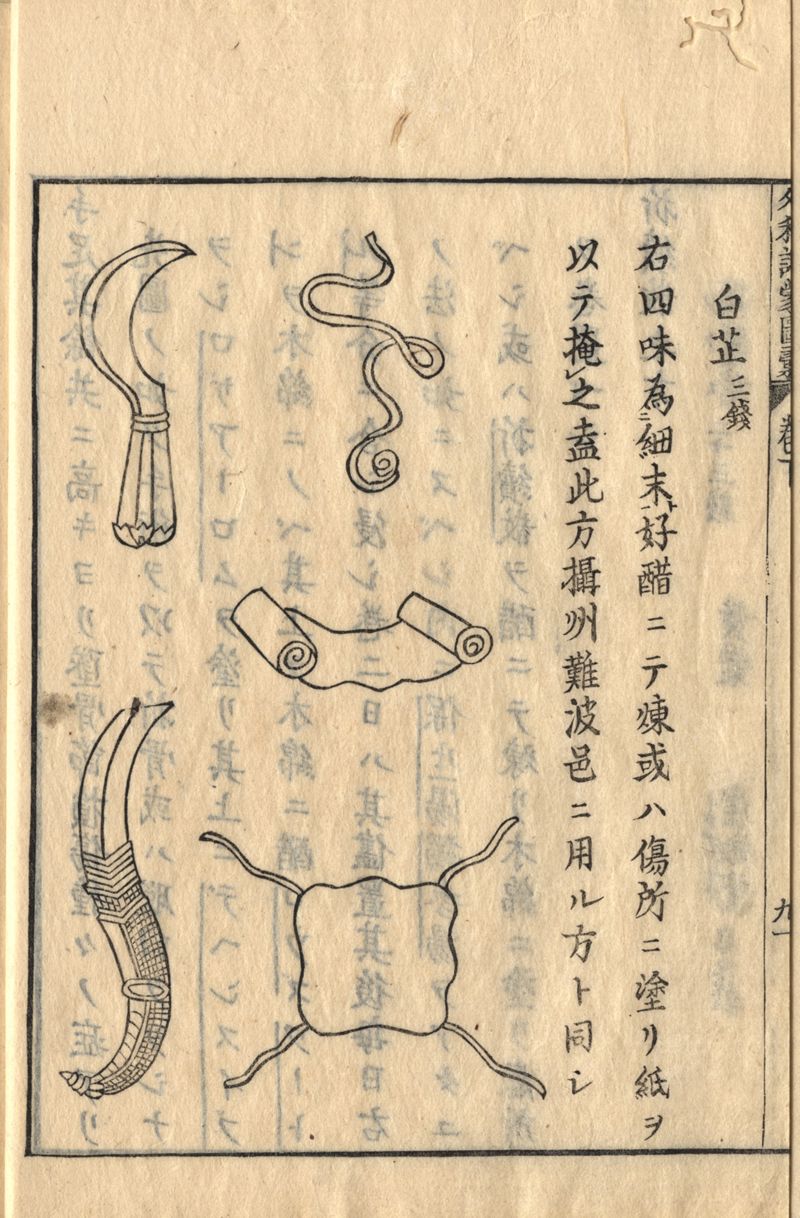 外科訓蒙圖彙 卷下
九一
白芷三錢
右四味為ニ細末ト好醋ニテ煉或ハ傷所ニ塗リ紙ヲ
以テ掩レ之盍此方攝州難波邑ニ用ル方ト同シ